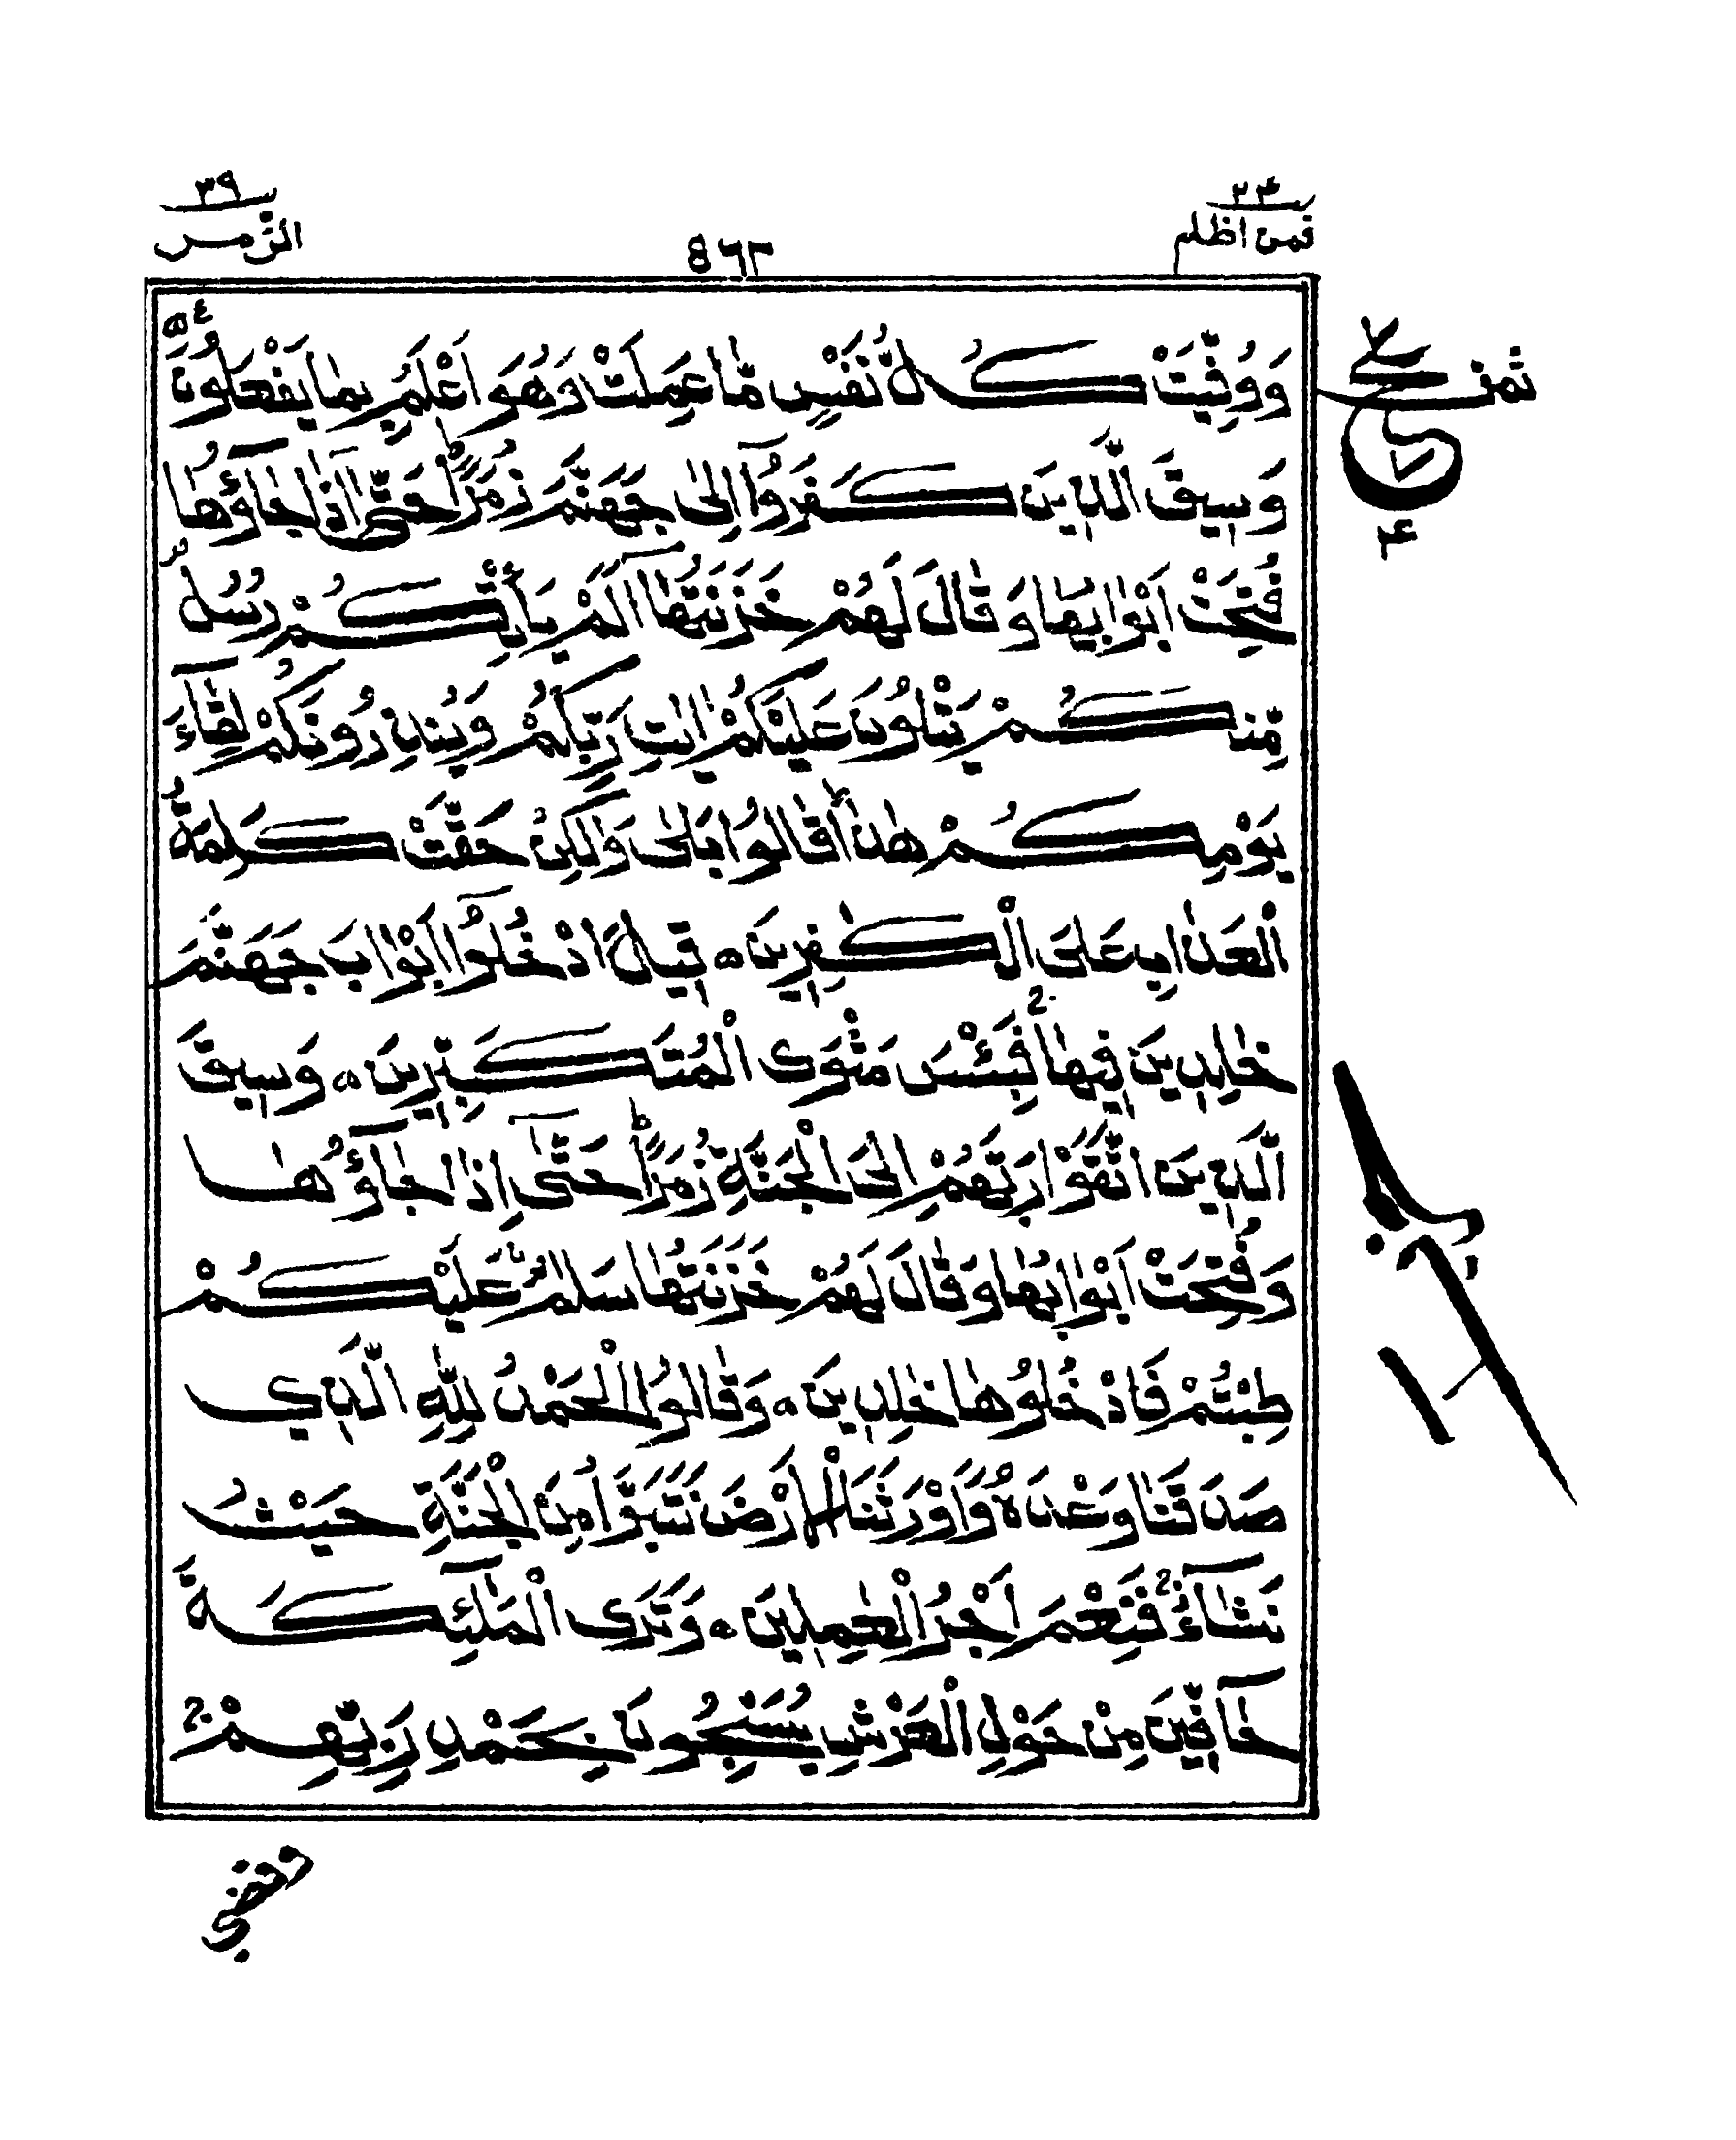 ٢٤
فمن اظلم
٥٦٢
٣٩
الزمر
وَوُفِّيَتْ كُلُّ نَفْسٍ مَّا عَمِلَتْ وَهُوَ اَعْلَمُ بِمَا يَفْعَلُوْنَ
وَسِيْقَ الَّذِيْنَ كَفَرُوْۤا اِلٰى جَهَنَّمَ زُمَرًاؕ حَتّٰۤى اِذَا جَآءُوْهَا
فُتِحَتْ اَبْوَابُهَا وَقَالَ لَهُمْ خَزَنَتُهَاۤ اَلَمْ يَاْتِكُمْ رُسُلٌ
مِّنْكُمْ يَتْلُوْنَ عَلَيْكُمْ اٰيٰتِ رَبِّكُمْ وَيُنْذِرُوْنَكُمْ لِقَآءَ
يَوْمِكُمْ هٰذَاؕ قَالُوْا بَلٰى وَلٰكِنْ حَقَّتْ كَلِمَةُ
الْعَذَابِ عَلَى الْكٰفِرِيْنَ ۝ قِيْلَ ادْخُلُوْۤا اَبْوَابَ جَهَنَّمَ
خٰلِدِيْنَ فِيْهَاۚ فَبِئْسَ مَثْوَى الْمُتَكَبِّرِيْنَ ۝ وَسِيْقَ
الَّذِيْنَ اتَّقَوْا رَبَّهُمْ اِلَى الْجَنَّةِ زُمَرًاؕ حَتّٰۤى اِذَا جَآءُوْهَا
وَفُتِحَتْ اَبْوَابُهَا وَقَالَ لَهُمْ خَزَنَتُهَا سَلٰمٌ عَلَيْكُمْ
طِبْتُمْ فَادْخُلُوْهَا خٰلِدِيْنَ ۝ وَقَالُوا الْحَمْدُ لِلّٰهِ الَّذِيْ
صَدَقَنَا وَعْدَهٗ وَاَوْرَثَنَا الْاَرْضَ نَتَبَوَّاُ مِنَ الْجَنَّةِ حَيْثُ
نَشَآءُۚ فَنِعْمَ اَجْرُ الْعٰمِلِيْنَ ۝ وَتَرَى الْمَلٰٓئِكَةَ
حَآفِّيْنَ مِنْ حَوْلِ الْعَرْشِ يُسَبِّحُوْنَ بِحَمْدِ رَبِّهِمْۚ
ثمن
٧
ع
٧
٤
وقضى